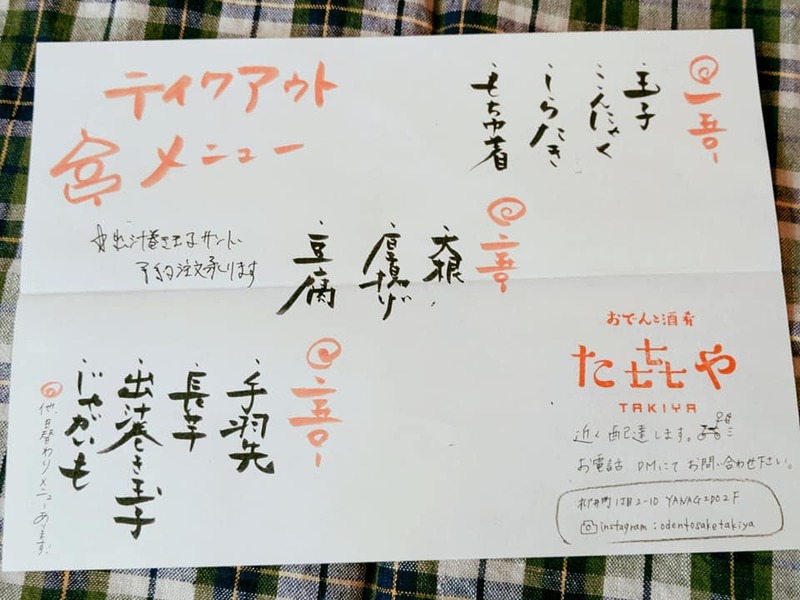 ティクアウト
メニュー
@一五〇-
・玉子
・こんにゃく
・しらたき
・もち巾着
・大根
・厚揚げ
・豆腐
☆出汁巻き玉子サンド、
予約注文承ります
@二五〇-
・手羽先
・長芋
・出汁巻き玉子
・じゃがいも
他、日替わりメニューあります。
おでんと酒肴
た㐂や
TAKIYA
近く配達します。
お電話 DMにてお問い合わせ下さい。
柳井町1丁目2-10 2F
instagram:odentosaketakiya